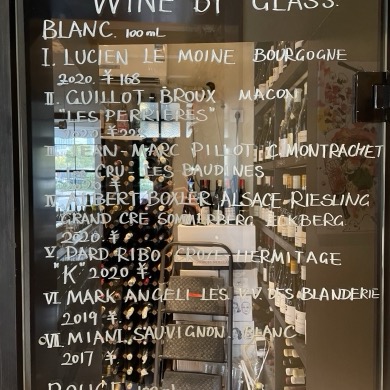 WINE BY GLASS.
BLANC. 100mL
I. LUCIEN LE MOINE BOURGOGNE
2020. ¥168
II. GUILLOT BROUX MACON
"LES PERRIERES"
2020. ¥228
III. JEAN-MARC PILLOT C.MONTRACHET
1ER CRU LES BAUDINES
IV. ALBERT BOXLER ALSACE RIESLING
GRAND CRE SOMMERBERG ECKBERG
2020. ¥
V. DARD RIBO CROZE HERMITAGE
"K" 2020 ¥
VI. MARK ANGELI LES V.V. DES BLANDERIE
2019 ¥
VII. MIANI SAUVIGNON BLANC
2017 ¥
ROUGE 100mL